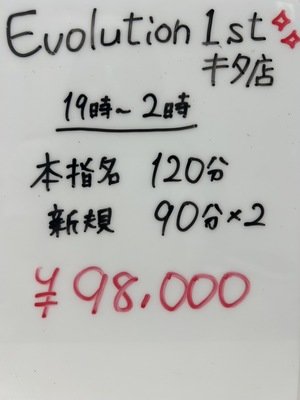 Evolution 1st
キタ店
19時~2時
本指名 120分
新規 90分×2
¥98,000